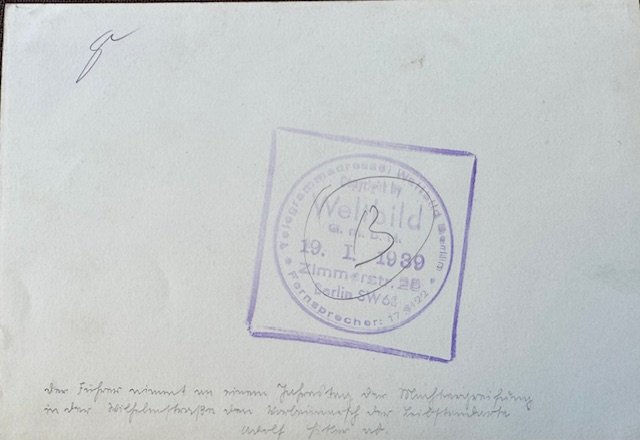 Telegrammadresse: Weltbild Berlin
Copyright by
Weltbild
G. m. b. H.
19. I. 1939
Zimmerstr. 28
Berlin SW 68
Fernsprecher:
B
Der Führer nimmt an einem Jahrestag der Machtergreifung
in der Wilhelmstraße den Vorbeimarsch der Leibstandarte
Adolf Hitler ab.